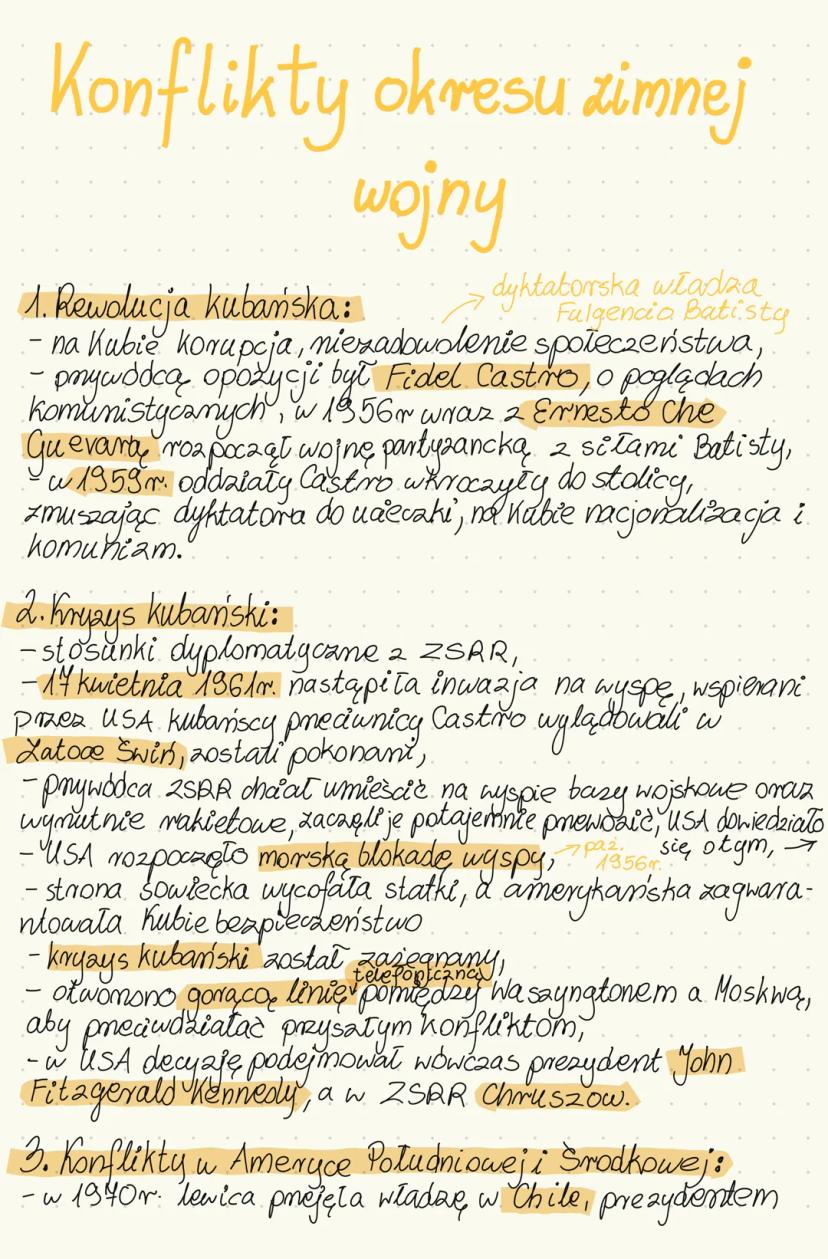 Konflikty okresu zimnej
wojny
1. Rewolucja kubańska:
dyktatorska władza
Fulgencia Batisty
- na Kubie korupcja, niezadowolenie społeczeństwa,
- przywódcą opozycji był Fidel Castro, o poglądach
komunistycznych, w 1956r wraz z Ernesto Che
Guevarą rozpoczął wojnę partyzancką z siłami Batisty,
- w 1959r. oddziały Castro wkroczyły do stolicy,
zmuszając dyktatora do ucieczki, na Kubie nacjonalizacja i
komunizm.
2. Kryzys kubański:
- stosunki dyplomatyczne z ZSRR,
- 17 kwietnia 1961r. nastąpiła inwazja na wyspę, wspierani
przez USA kubańscy przeciwnicy Castro wylądowali w
Zatoce Świń, zostali pokonani,
- przywódca ZSRR chciał umieścić na wyspie bazy wojskowe oraz
wyrzutnie rakietowe, zaczęli je potajemnie przewozić, USA dowiedziało
się o tym, →
- USA rozpoczęło morską blokadę wyspy, → paź.
1956r.
- strona sowiecka wycofała statki, a amerykańska zagwara-
ntowała Kubie bezpieczeństwo
- kryzys kubański został zażegnany,
telefoniczną
- otworzono gorącą linię pomiędzy Waszyngtonem a Moskwą,
aby przeciwdziałać przyszłym konfliktom,
- w USA decyzję podejmował wówczas prezydent John
Fitzgerald Kennedy, a w ZSRR Chruszow.
3. Konflikty w Ameryce Południowej i Środkowej:
- w 1970r. lewica przejęła władzę w Chile, prezydentem